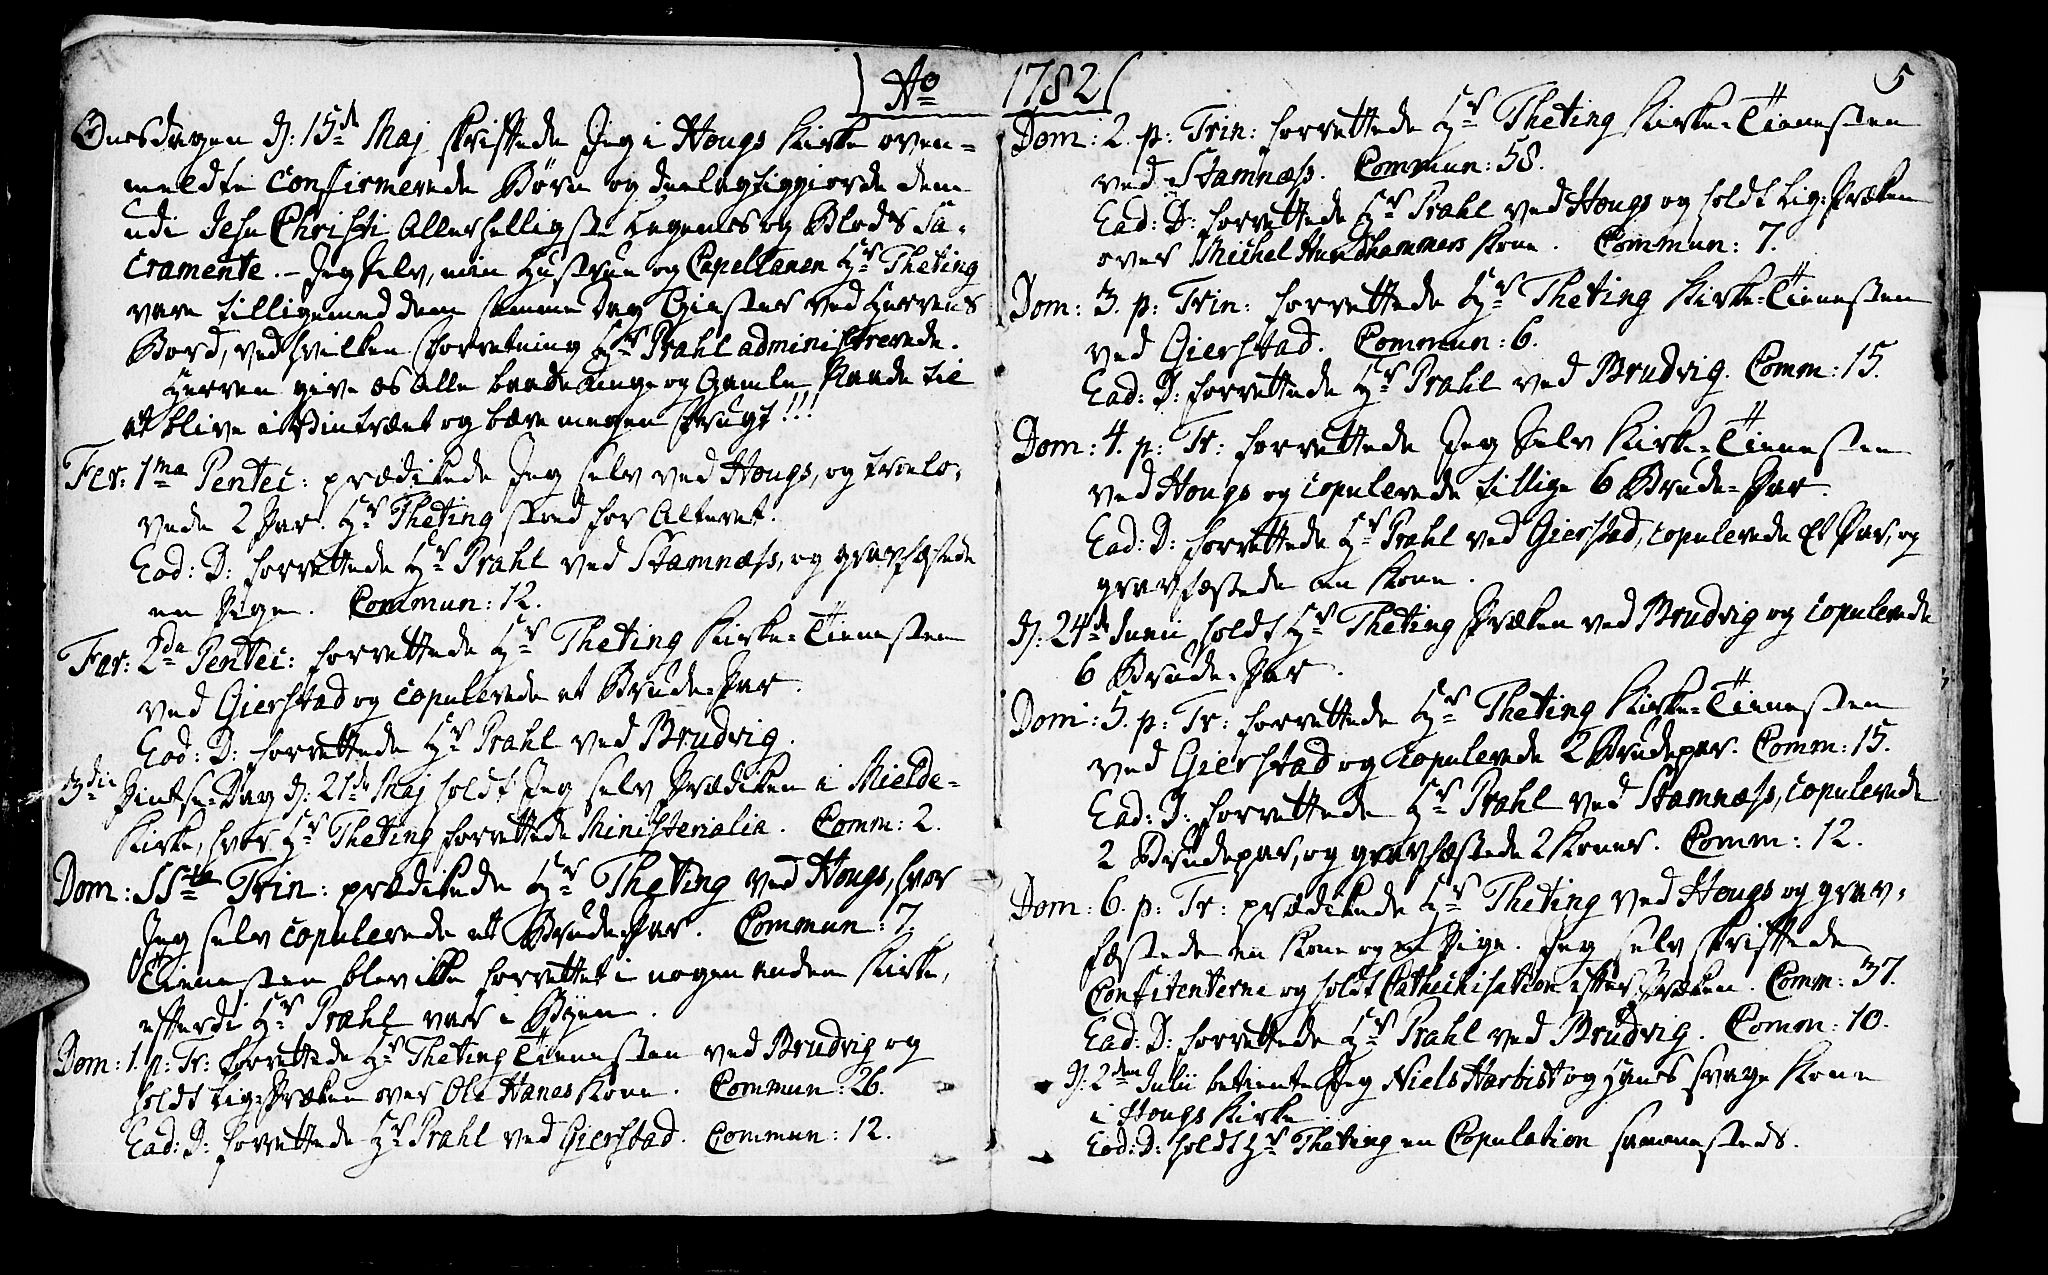 Ao 1782
5
Onsdagen d: 15de Maj skriftede Jeg i Hougs Kirke oven-
meldte confirmerede Børn og deelagtiggiorde dem
udi Jesu Christi Allerhelligste Legemes og Blods Sa-
cramente. - Jeg selv, min Hustrue og Capellanen Hr Theting
vare tilligemed dem samme Dag Giester ved Herrens
Bord, ved hvilken Forretning Hr Prahl administrerede.
Herren give os Alle baade unge og Gamle Naade til
at blive i Viintræet og bære megen Frugt!!!
Fer: 1ma Pentec: prædikede Jeg selv ved Hougs, og troelo-
vede 2 Par. Hr Theting stoed for Alteret.
Eod: D: forrettede Hr Prahl ved Stamnæss, og gravfæstede
en Pige. Commun: 12.
Fer: 2da Pentec: forrettede Hr Theting Kirke-Tienesten
ved Gierstad og copulerede et Brude-Par.
Eod: D: forrettede Hr Prahl ved Brudvig.
3die Pintse-Dag d: 21de Maj holdt Jeg selv Prædiken i Mielde-
Kirke, hvor Hr Theting forrettede Ministerialia. Comm: 2.
Dom: SSta Trin: prædikede Hr Theting ved Hougs, hvor
Jeg selv copulerede et Brude-Par. Commun: 7.
Tienesten blev ikke forrettet i nogen anden Kirke,
efterdi Hr Prahl var i Byen.
Dom: 1. p: Tr: forrettede Hr Theting Tienesten ved Brudvig og
holdt Lig-Præken over Ole Hanes Kone. Commun: 26.
Ead: D: forrettede Hr Prahl ved Gierstad. Commun: 12.
Dom: 2. p: Trin: forrettede Hr Theting Kirke-Tienesten
ved Stamnæss. Commun: 58.
Ead: D: forrettede Hr Prahl ved Hougs og holdt Lig-Præken
over Michel Kone. Commun: 7.
Dom: 3. p: Trin: forrettede Hr Theting Kirke-Tienesten
ved Gierstad. Commun: 6.
Ead: D: forrettede Hr Prahl ved Brudvig. Comm: 15.
Dom: 4. p: Tr: forrettede Jeg Selv Kirke-Tienesten
ved Hougs og copulerede tillige 6 Brude-Par.
Ead: D: forrettede Hr Prahl ved Gierstad, copulerede Et Par, og
gravfæstede en Kone.
d: 24de Junii holdt Hr Theting Præken ved Brudvig og copulerede
6 Brude-Par.
Dom: 5. p: Tr: forrettede Hr Theting Kirke-Tienesten
ved Gierstad og copulerede 2 Brudepar. Comm: 15.
Ead: D: forrettede Hr Prahl ved Stamnæss, copulerede
2 Brudepar, og gravfæstede 2 Koner. Comm: 12.
Dom: 6. p: Tr: prædikede Hr Theting ved Hougs og grav-
fæstede en Kone og en Pige. Jeg selv skriftede
Confitenterne og holdt Catheihisation efter Præken. Comm: 37.
Ead: D: forrettede Hr Prahl ved Brudvig. Comm: 10.
D: 2den Julii betiente Jeg Niels Harbist og Hans svage Kone
i Hougs Kirke
Eod: D: holdt Hr Theting en Copulation sammesteds.